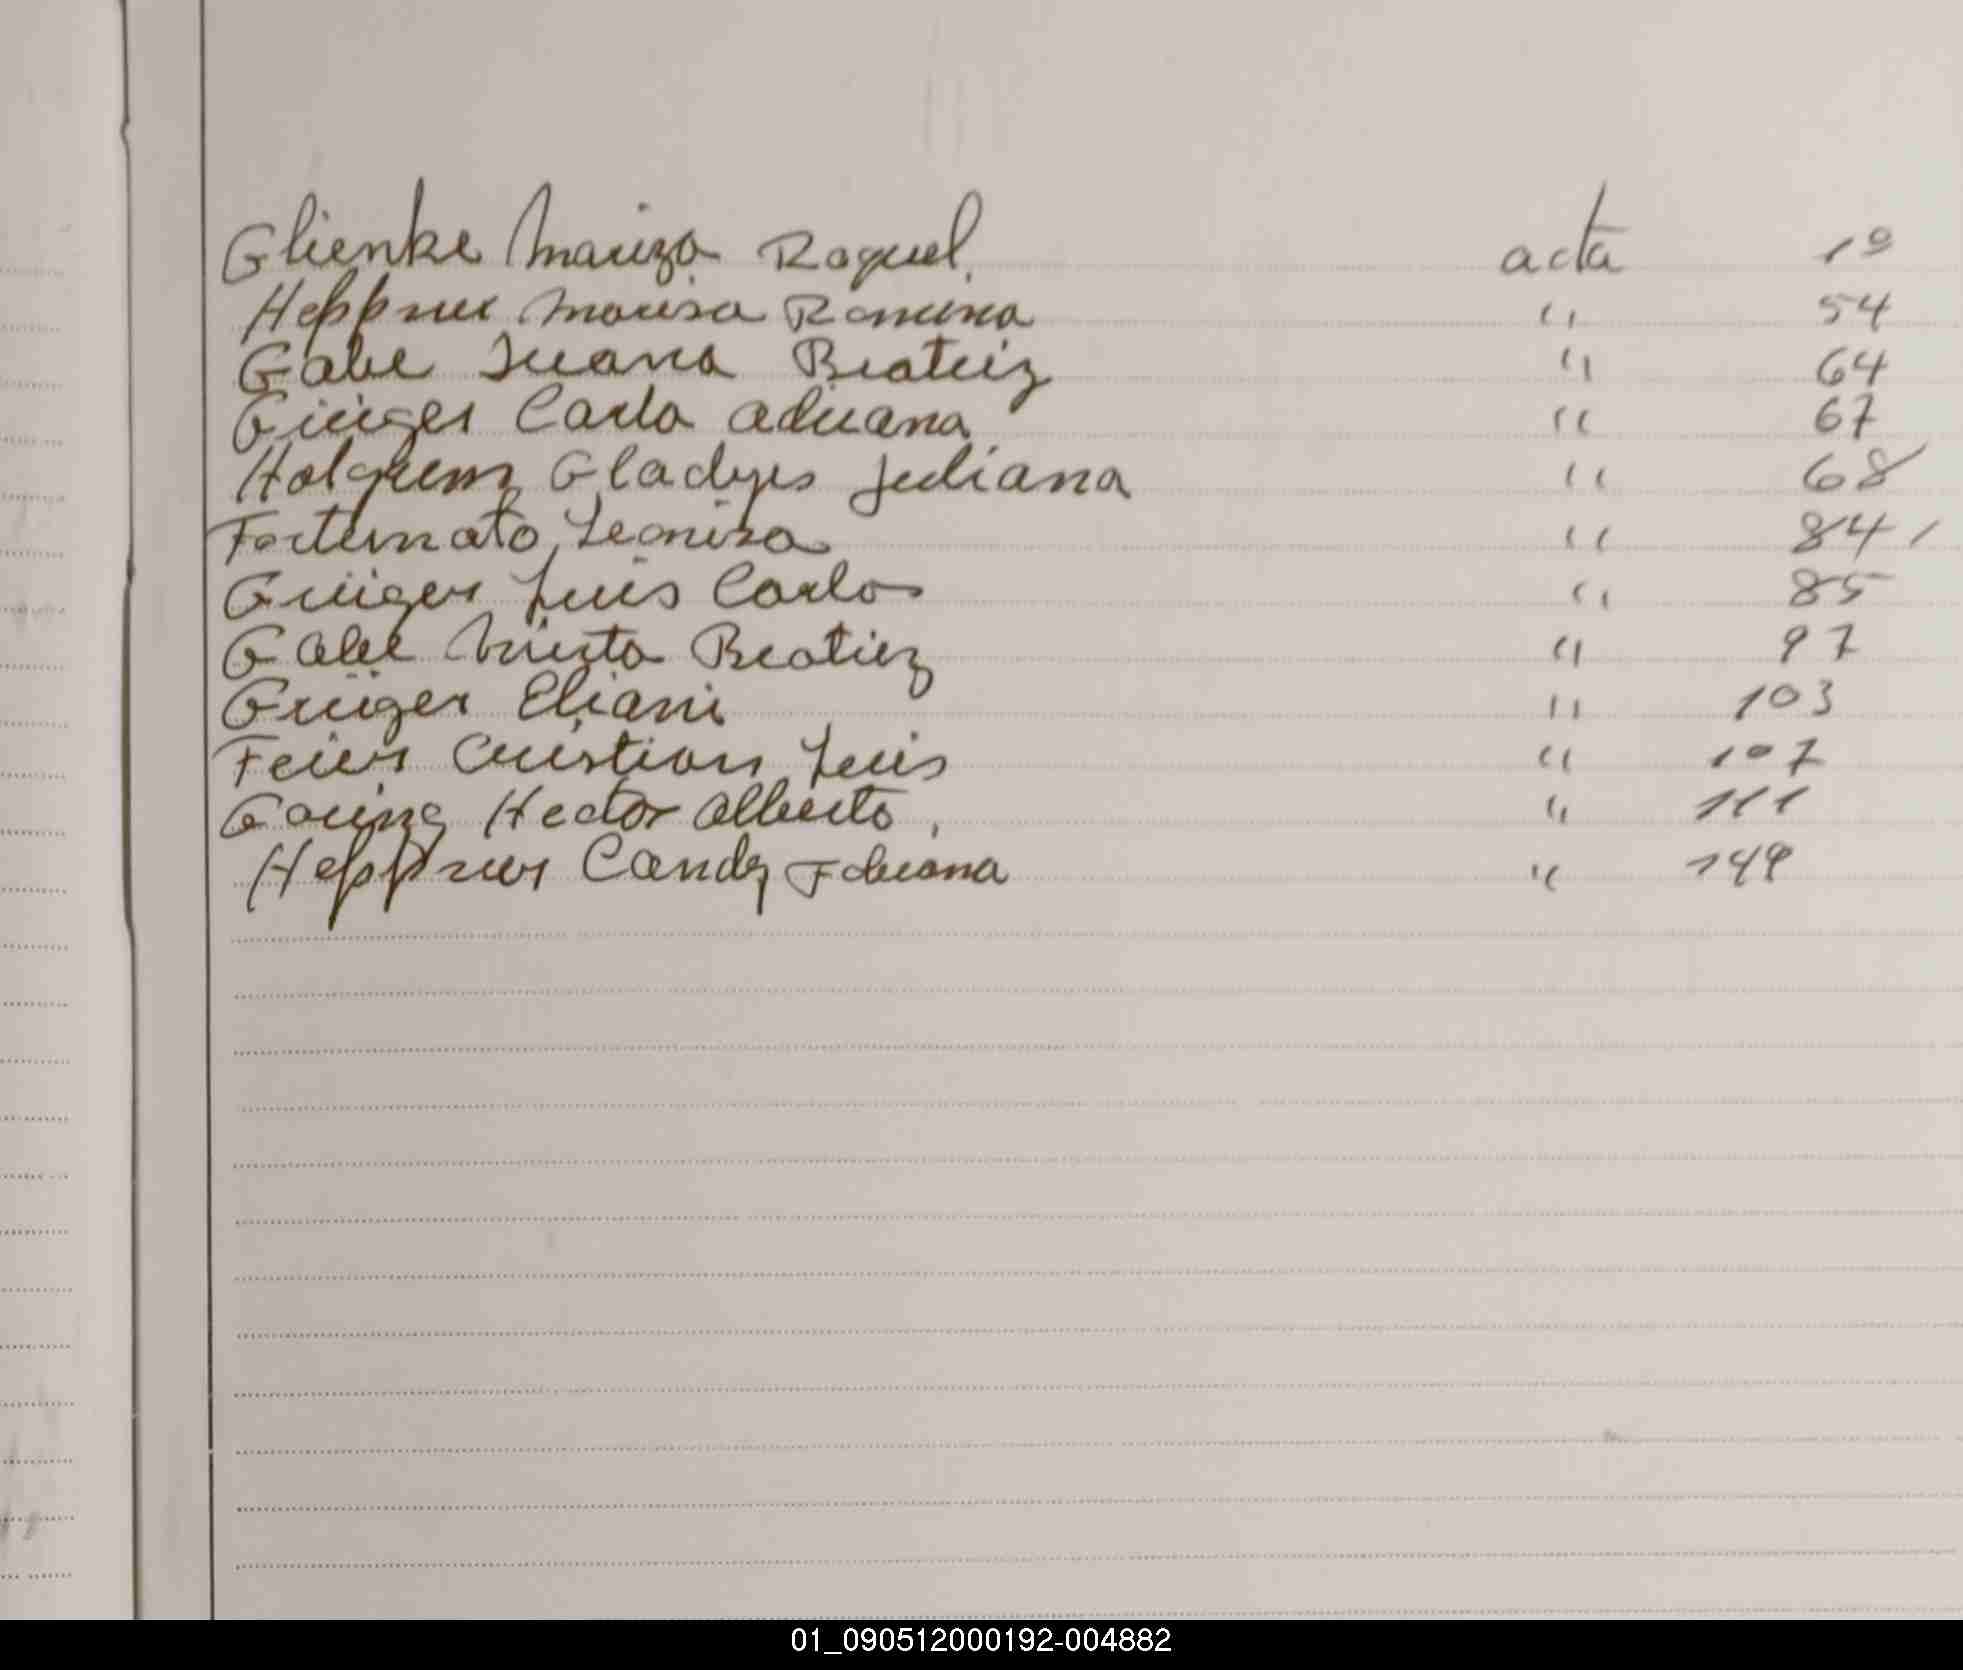 Glienke Mariza Raquel. acta 1º
Heppner Marisa Romina " 54
Gabe Juana Beatriz " 64
Grüiger Carla Adriana " 67
Holgrem Gladys Juliana " 68
Fortunato, Leoniza " 84
Grüiger Luis Carlos " 85
Gabe Mirta Beatriz " 97
Grüiger Eliani " 103
Feier Cristian Luis " 107
Goring Hector Alberto, " 111
Heppner Candy Fabiana " 149
01_090512000192-004882